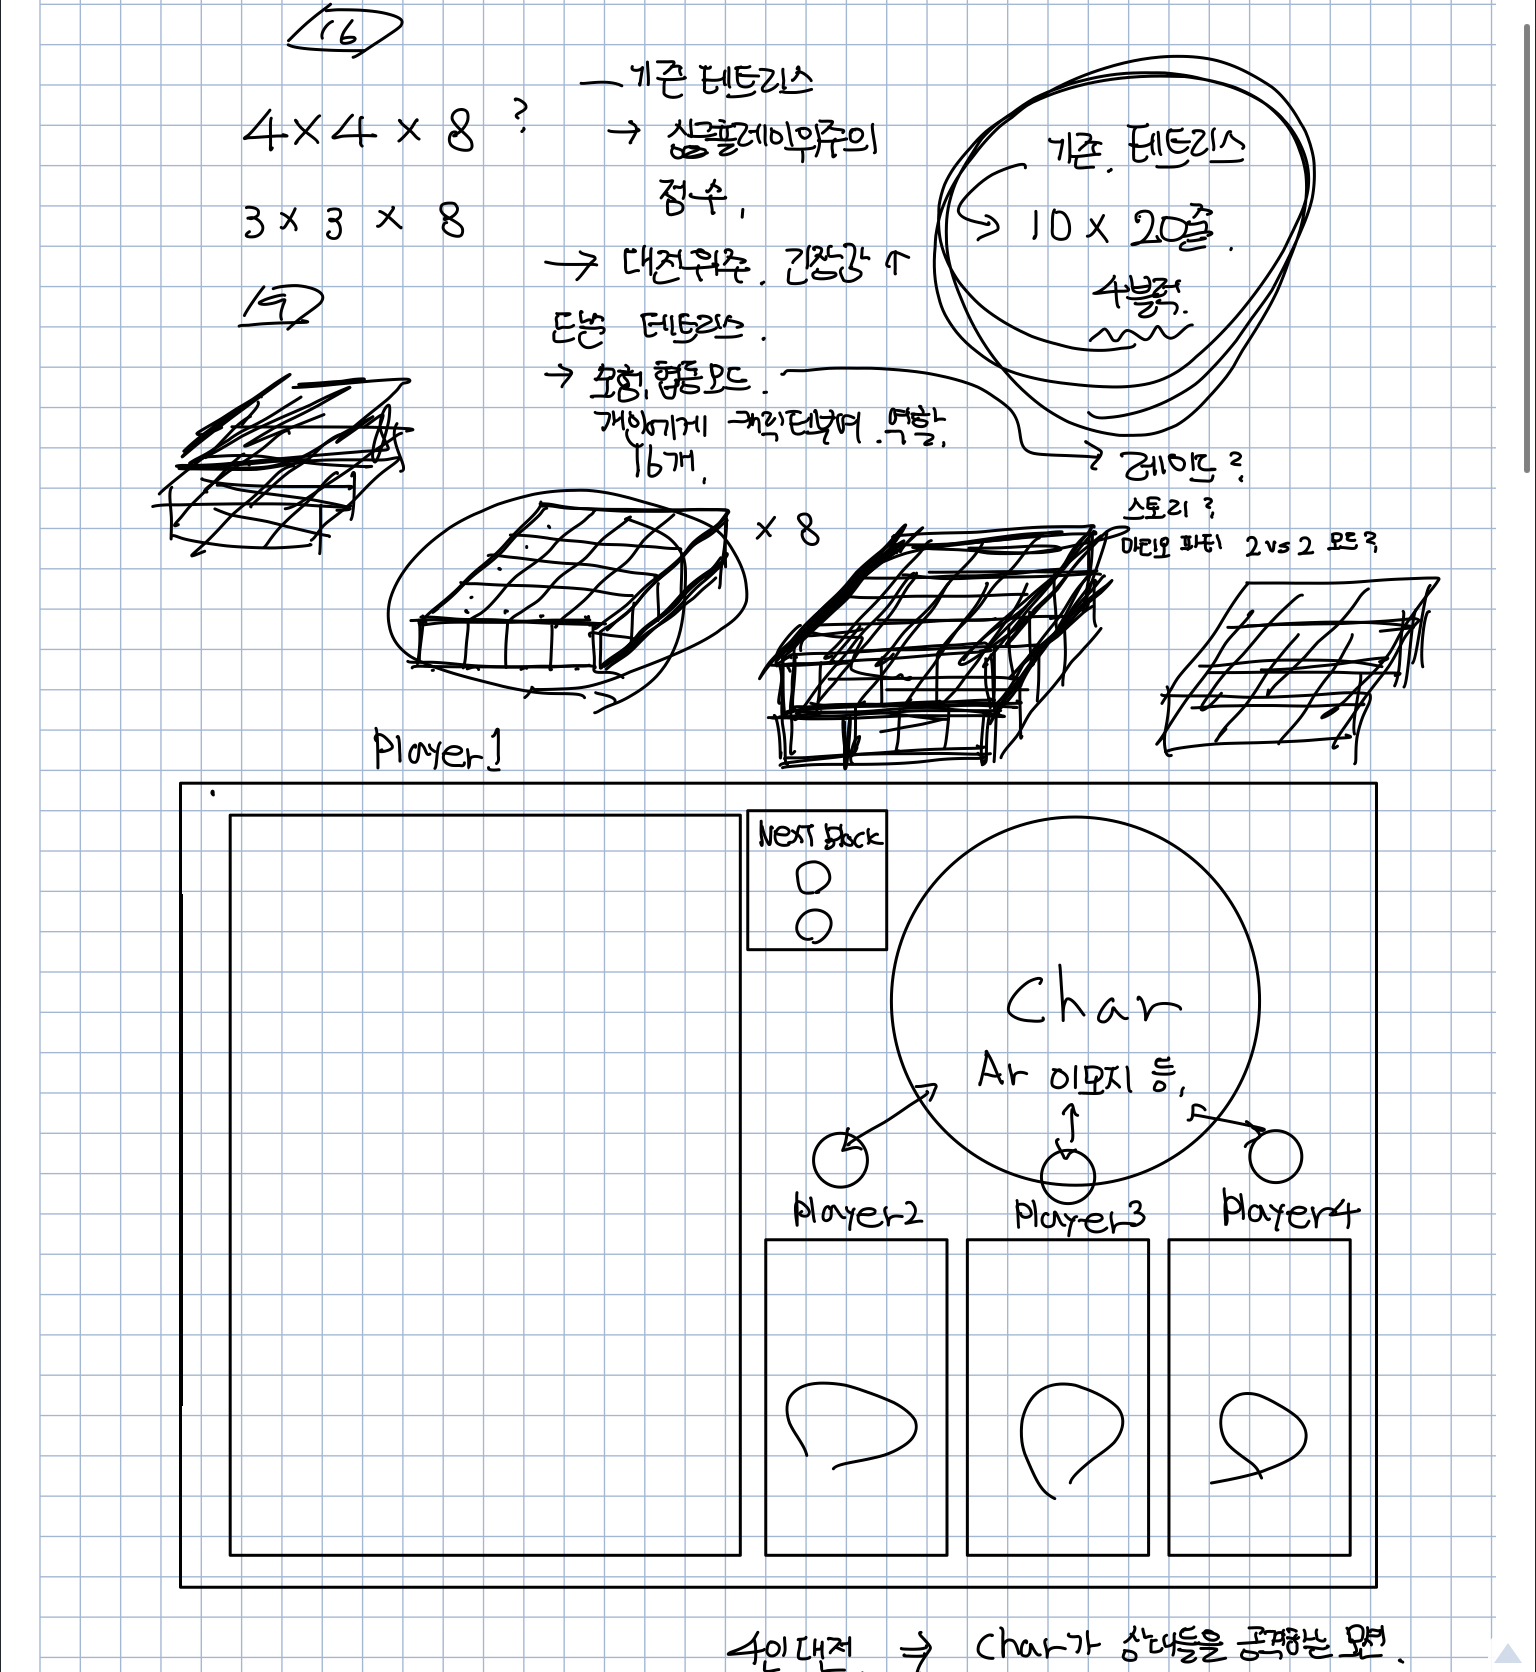 16
4 × 4 × 8 ?
3 × 3 × 8
9
— 기존 테트리스
→ 싱글플레이위주의
점수.
→ 대전위주. 긴장감 ↑
테트리스.
→ 모험, 협동모드.
개인에게 캐릭터부여. 역할.
16개.
기존. 테트리스
→ 10 × 20줄.
4블럭.
→ 레이드?
스토리?
마리오 파티 2 vs 2 모드?
× 8
Player1
Next Block
Char
Ar 이모지 등.
Player2
Player3
Player4
4인대전 ⇒ Char가 상대들을 공격하는 모션.